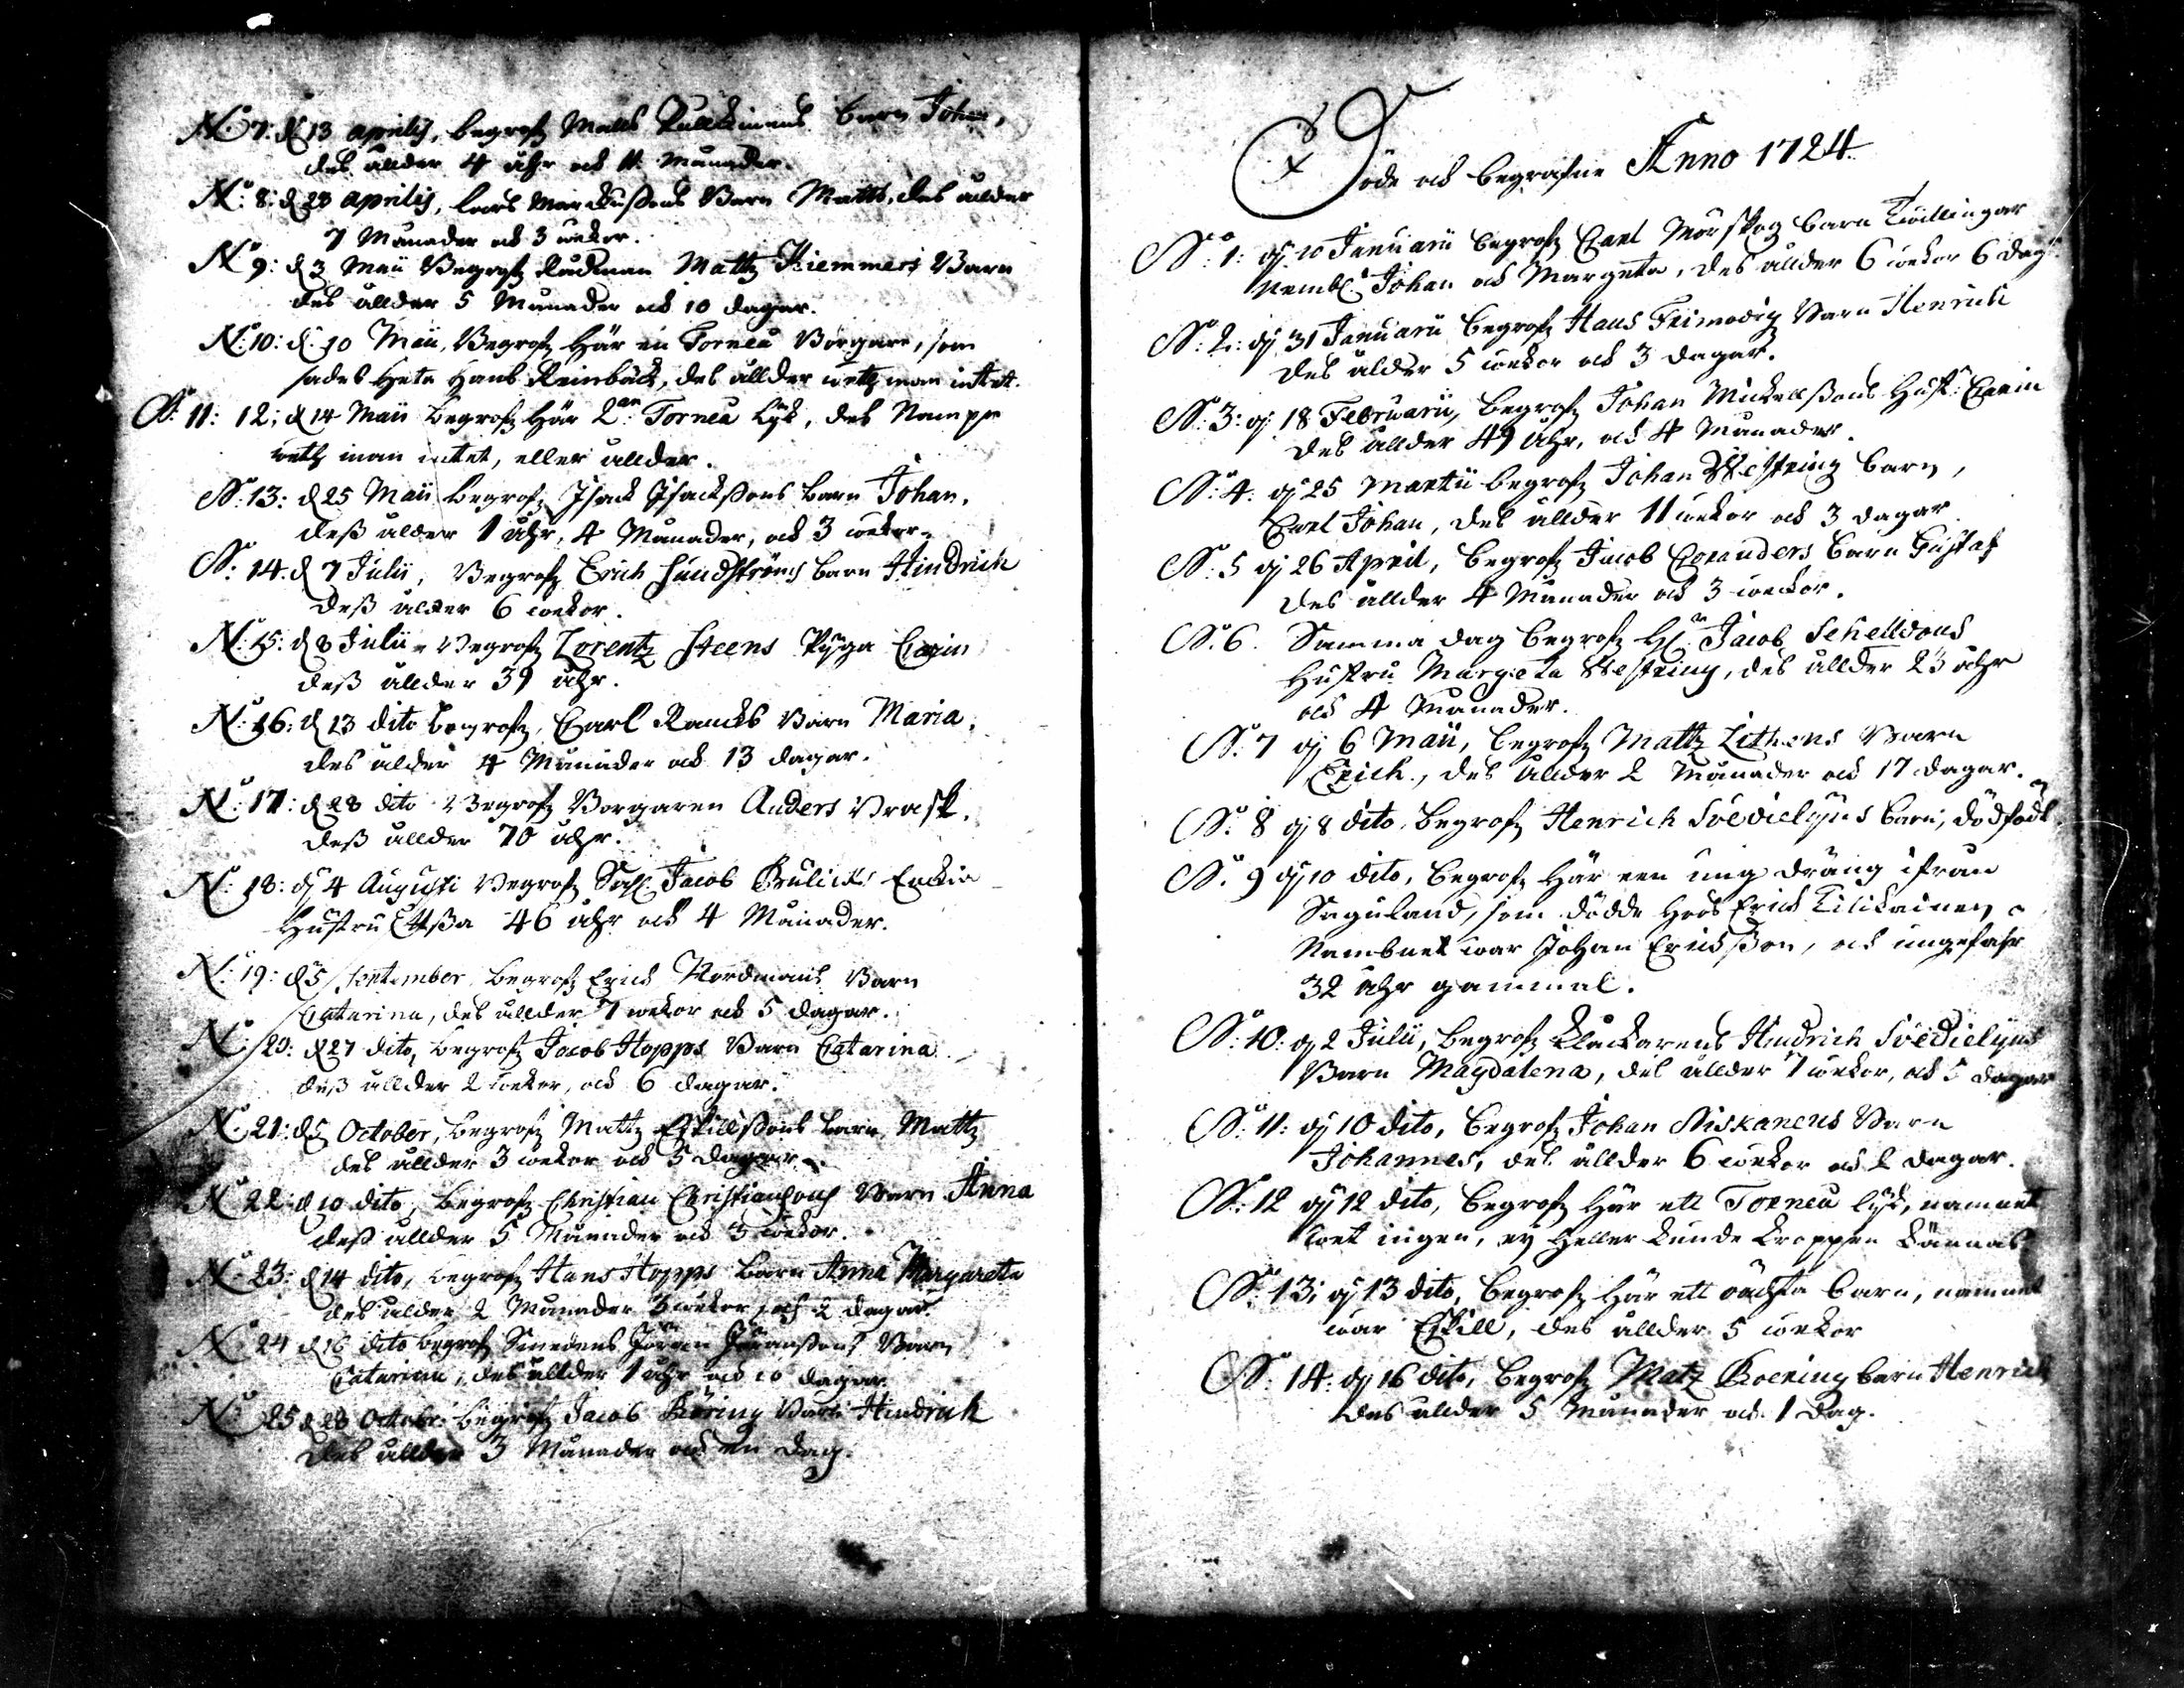 No 7: d 13 aprilis, begrofz Matts barn Johan,
des ålder 4 åhr och 11 Månader.
No 8: d 23 aprilis, Lars Marckussons Barn Matts, des ålder
7 Månader och 3 wekor.
No 9: d 3 Maii Begrofz Rådman Mattz Kiemmers Barn
des ålder 5 Månader och 10 dagar.
No 10: d. 10 Maii, Begrofz här en Torneå Borgare, som
sades heta Hans Reinbäck, des ållder wetz man intet.
No 11: 12: d 14 Maii begrofz här 2ne Torneå Lijk, des Nampn
wetz man intet, eller ållder.
No 13: d 25 Maii begrofz Isack Isackssons barn Johan,
dess ålder 1 åhr, 4 Månader, och 3 wekor.
No 14: d 7 Julii, Begrofz Erich Sundströms barn Hindrich
Dess ålder 6 wekor.
No 15: d 8 Julii Begrofz Lorentz Steens Pyga Carin
dess ållder 39 åhr.
No 16: d 13 dito begrofz, Carl Ramcks Barn Maria,
des ålder 4 Månader och 13 dagar.
No 17: d 28 dito Begrofz Borgaren Anders Brask,
dess ållder 70 åhr.
No 18: d 4 Augusti Begrofz Sahl Jacob Enckia
Hustru 46 åhr och 4 Månader.
No 19: d 5 September begrofz Erich Nordmans Barn
Catarina, des ållder 7 wekor och 5 dagar.
No 20: d 27 dito, begrofz Jacob Hopps Barn Catarina
dess ållder 2 wekor, och 6 dagar.
No 21: d 5 October, begrofz Mattz Eskillssons barn Mattz
des ållder 3 wekor och 5 dagar
No 22: d 10 dito, begrofz Christian Christiansons Barn Anna
dess ållder 5 Månader och 3 wekor.
No 23: d 14 dito, begrofz Hans Hopps barn Anna Margareta
des ålder 2 Månader 3 wekor och 2 dagar
No 24 d 16 dito begrofz Smedens Jöran Jöranssons Barn
Catarina, des ållder 1 åhr och 10 dagar
No 25 d 28 Octobr: begrofz Jacob Böring Barn Hindrich
des ållder 3 Månader och en dag.
Döde och begrafne Anno 1724
No 1: dj 10 Januarii begrofz Carl Morskog barn Twillingar
Nembl: Johan och Margeta, des ålder 6 wekor 6 dag
No 2: dj 31 Januarii begrofz Hans Frimodig Barn Henrich
des ålder 5 wekor och 3 dagar.
No 3: dj 18 Februarii, begrofz Johan Mickellssons Hust: Carin
des ållder 49 åhr, och 4 Månader.
No 4: dj 25 Martii begrofz Johan Westring barn,
Carl Johan, des ållder 11 wekor och 3 dagar
No 5 dj 26 April, begrofz Jacob Coranders barn Gustaf
des ållder 4 Månader och 3 weckor.
No 6. Samma dag begrofz Hr Jacob Schelldons
Hustru Margeta Westring, des ållder 23 åhr
och 4 Månader.
No 7 dj 6 Maii, begrofz Mattz Lithens Barn
Erich, des ålder 2 Månader och 17 dagar.
No 8 dj 8 dito, begrofz Henrich Svedielijus barn, dödfödt.
No 9 dj 10 dito, begrofz här een ung dräng ifrån
Saguland, som dödde hoos Erich Tilikainen,
Nambnet war Johan Erichsson, och ungefahr
32 åhr gammal.
No 10: dj 2 Julii, begrofz klackarens Hindrich Svedielijus
Barn Magdalena, des ållder 7 wekor, och 5 dagar
No 11: dj 10 dito, begrofz Johan Niskanens Barn
Johannes, des ållder 6 wekor och 2 dagar.
No 12 dj 12 dito, begrofz här ett Torneå lijk, namnet
wet ingen, ey heller kunde kroppen kännas
No 13: dj 13 dito, begrofz här ett oächta barn, namnet
war Eskill, des ållder 5 wekor
No 14: dj 16 dito, begrofz Matz Boering barn Henrich
des ålder 5 Månader och 1 dag.